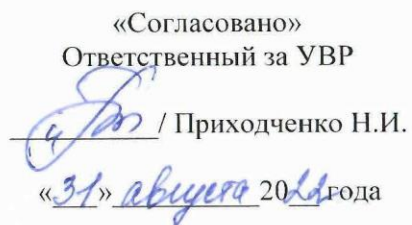 «Согласовано»
Ответственный за УВР
/ Приходченко Н.И.
«31» августа 2022 года